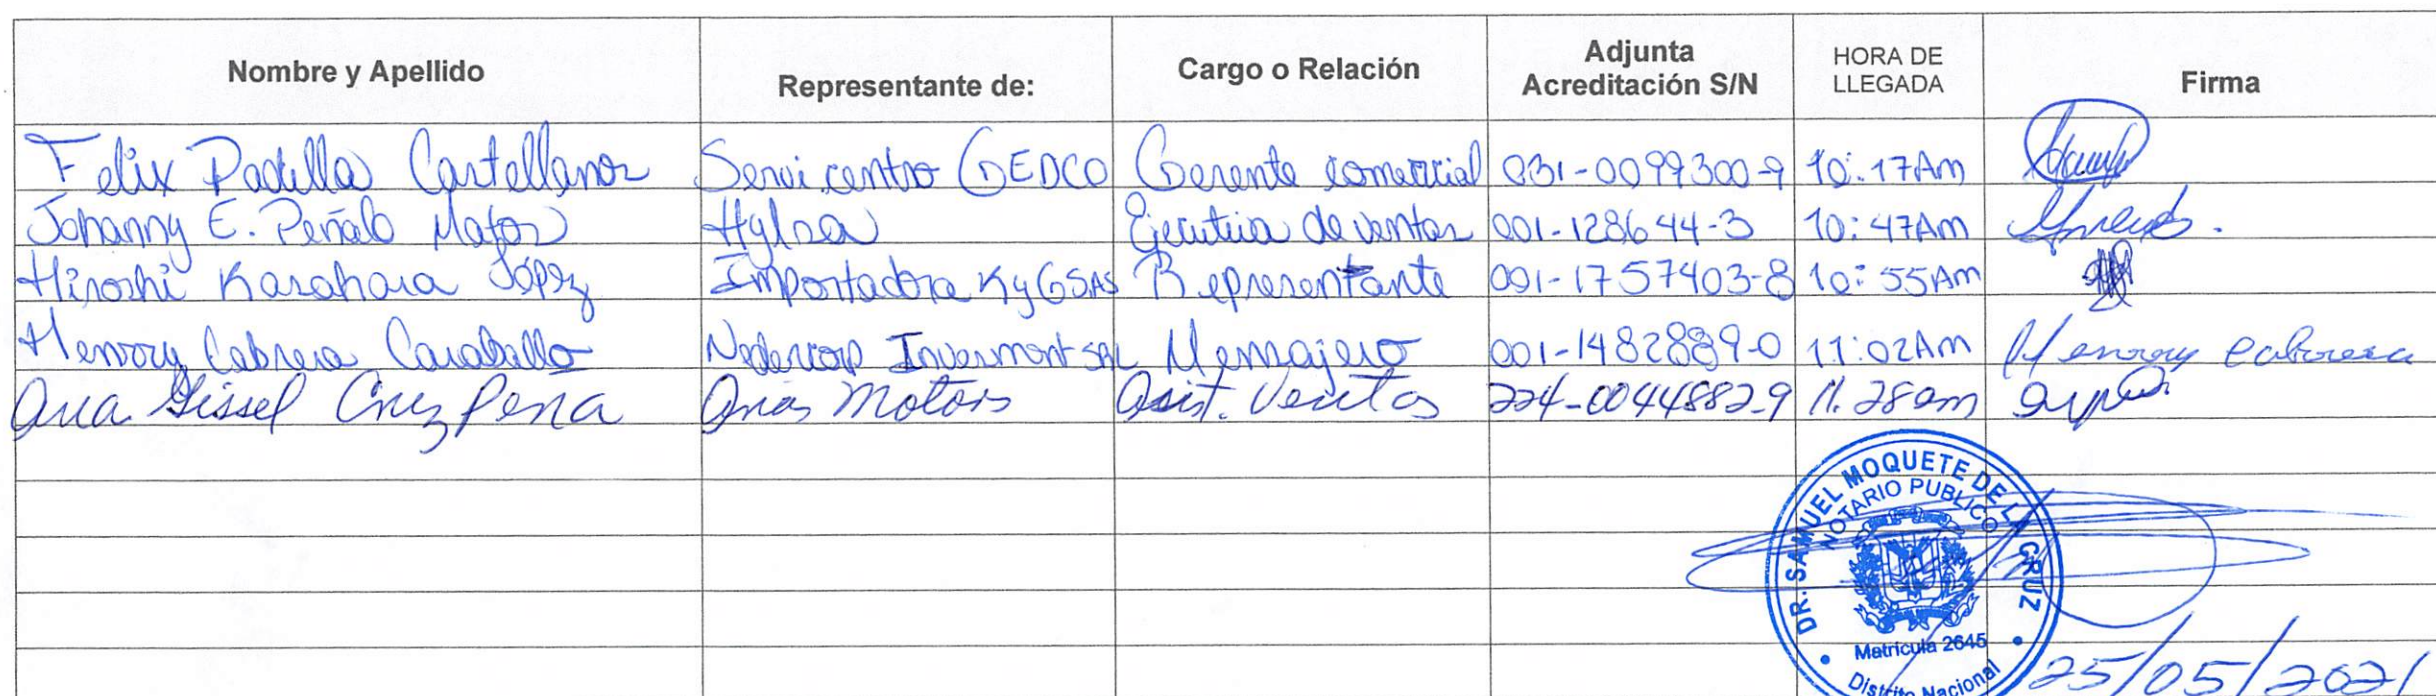 Nombre y Apellido Representante de: Cargo o Relación Adjunta Acreditación S/N HORA DE LLEGADA Firma
Felix Padilla Castellanos Servicentro GEDCO Gerente comercial 031-0099300-9 10:17Am
Johanny E. Peñalo Matos Hylsa Ejecutiva de ventas 001-128644-3 10:47Am
Hiroshi Kasahara López Importadora KyG SAS Representante 001-1757403-8 10:55Am
Henrry Cabrera Caraballo Inversment SRL Mensajero 001-1482889-0 11:02Am Henrry Cabrera
Ana Gissel Cruz Peña Motors Asist. Ventas 224-0044882-9 11.28am
DR. SAMUEL MOQUETE DE LA CRUZ
NOTARIO PUBLICO
Matricula 2645
Distrito Nacional
25/05/2021